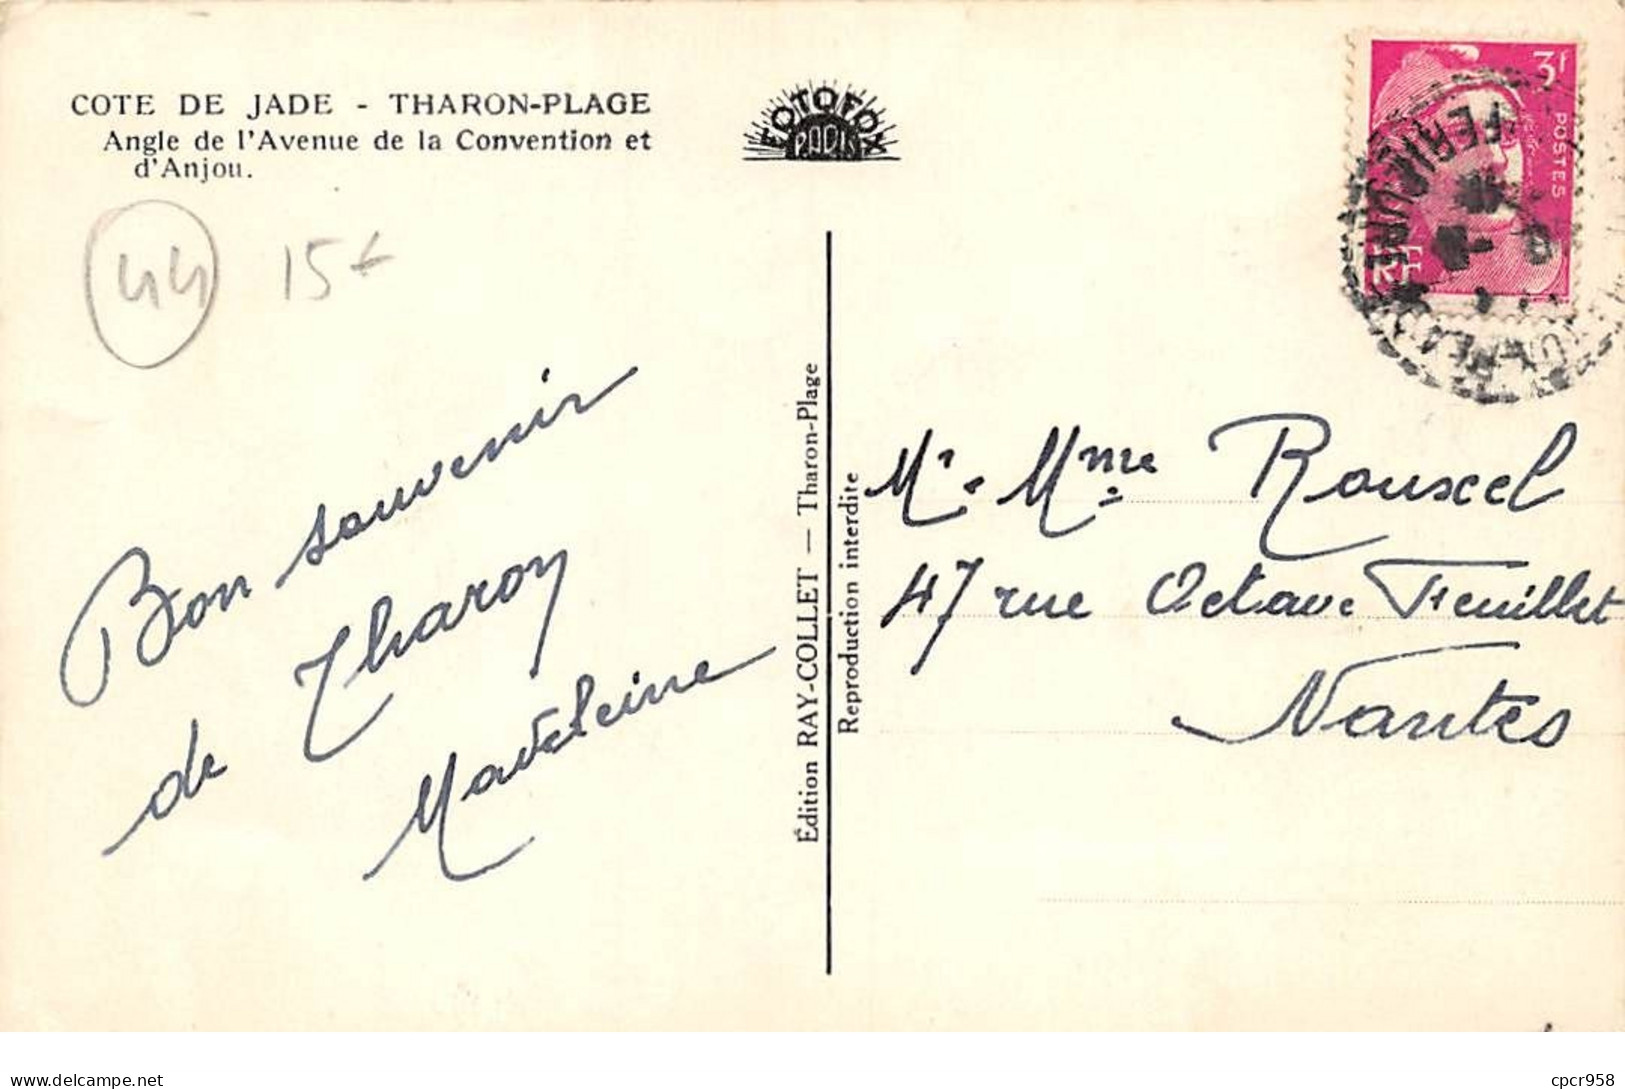 COTE DE JADE - THARON-PLAGE
Angle de l'Avenue de la Convention et
d'Anjou.
FOTOFOX
PARIS
3f
POSTES
RF
44
15f
Bon souvenir
de Tharon
Madeleine
Édition RAY-COLLET — Tharon-Plage
Reproduction interdite
Mr. Mme Rouxcel
47 rue Octave Feuillet
Nantes
delcampe.net
cpcr958